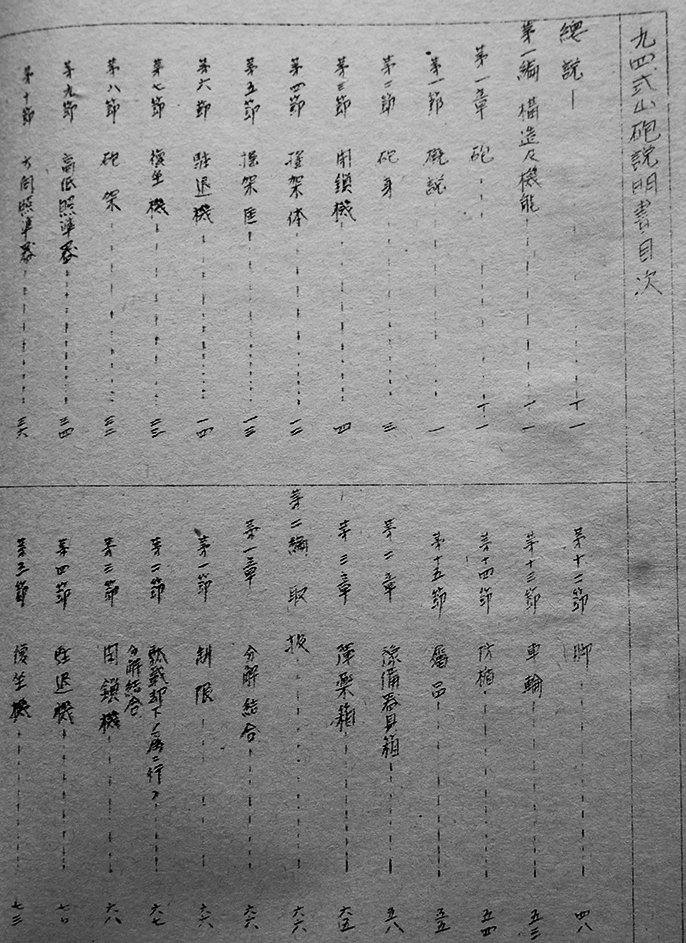 九四式山砲説明書目次
總説 一
第一編 構造及機能 一
第一章 砲 一
第一節 概説 一
第二節 砲身 三
第三節 閉鎖機 四
第四節 搖架体 一二
第五節 搖架匡 一三
第六節 駐退機 一四
第七節 復坐機 二三
第八節 砲架 三二
第九節 高低照準器 三四
第十節 方向照準器 三六
第十二節 脚 四八
第十三節 車輪 五三
第十四節 防楯 五四
第十五節 属品 五五
第二章 豫備器具箱 五八
第三章 彈藥箱 六五
第二編 取扱 六六
第一章 分解結合 六六
第一節 制限 六六
第二節 駄載卸下ノ為ニ行フ分解結合 六七
第三節 閉鎖機 六八
第四節 駐退機 七〇
第五節 復坐機 七三